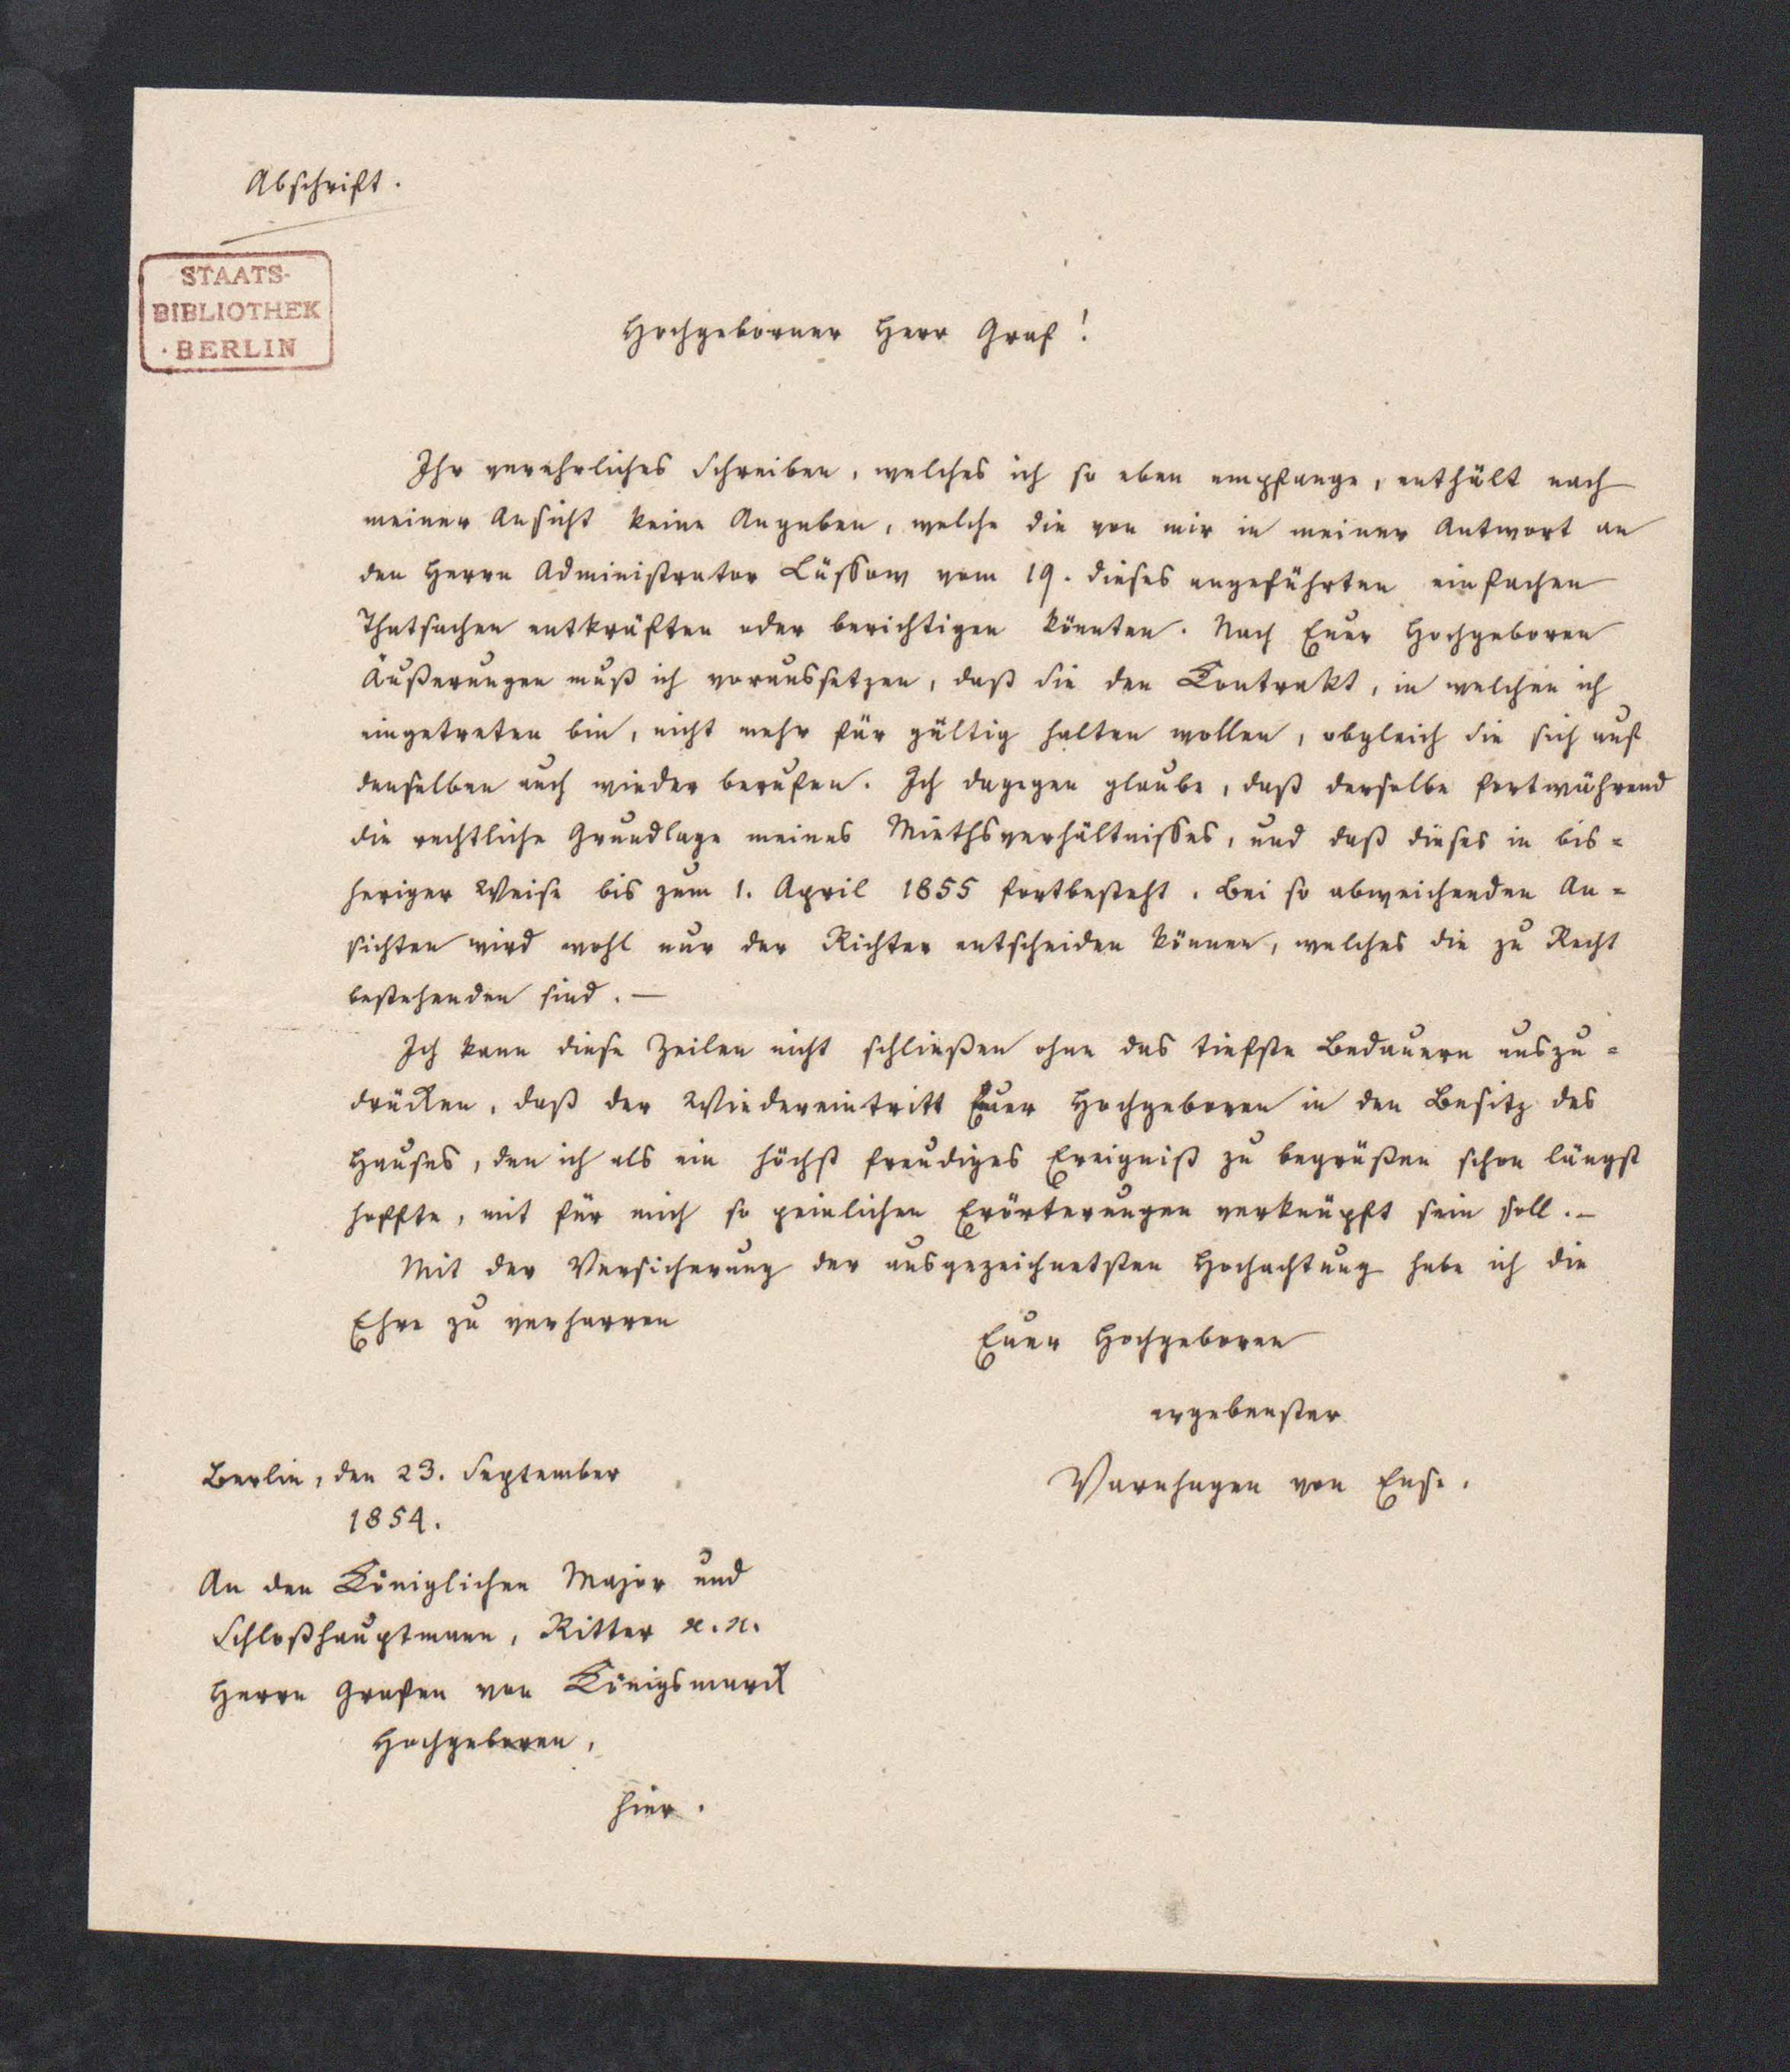 Abschrift.
STAATS-
BIBLIOTHEK
·BERLIN
Hochgeborner Herr Graf!
Ihr verehrliches Schreiben, welches ich so eben empfange, enthält nach
meiner Ansicht keine Angaben, welche die von mir in meiner Antwort an
den Herrn Administrator Lüssow vom 19. dieses angeführten einfachen
Thatsachen entkräften oder berichtigen könnten. Nach Euer Hochgeboren
Äußerungen muß ich voraussetzen, daß Sie den Kontrakt, in welchen ich
eingetreten bin, nicht mehr für gültig halten wollen, obgleich Sie sich auf
denselben auch wieder berufen. Ich dagegen glaube, daß derselbe fortwährend
die rechtliche Grundlage meines Miethsverhältnisses, und daß dieses in bis=
heriger Weise bis zum 1. April 1855 fortbesteht. Bei so abweichenden An=
sichten wird wohl nur der Richter entscheiden können, welches die zu Recht
bestehenden sind. —
Ich kann diese Zeilen nicht schließen ohne das tiefste Bedauern auszu=
drücken, daß der Wiedereintritt Euer Hochgeboren in den Besitz des
Hauses, den ich als ein höchst freudiges Ereigniß zu begrüßen schon längst
hoffte, mit für mich so peinlichen Erörterungen verknüpft sein soll. —
Mit der Versicherung der ausgezeichnetsten Hochachtung habe ich die
Ehre zu verharren
Euer Hochgeboren
ergebenster
Varnhagen von Ense.
Berlin, den 23. September
1854.
An den Königlichen Major und
Schloßhauptmann, Ritter ꝛc. ꝛc.
Herrn Grafen von Königsmarck
Hochgeboren,
hier.